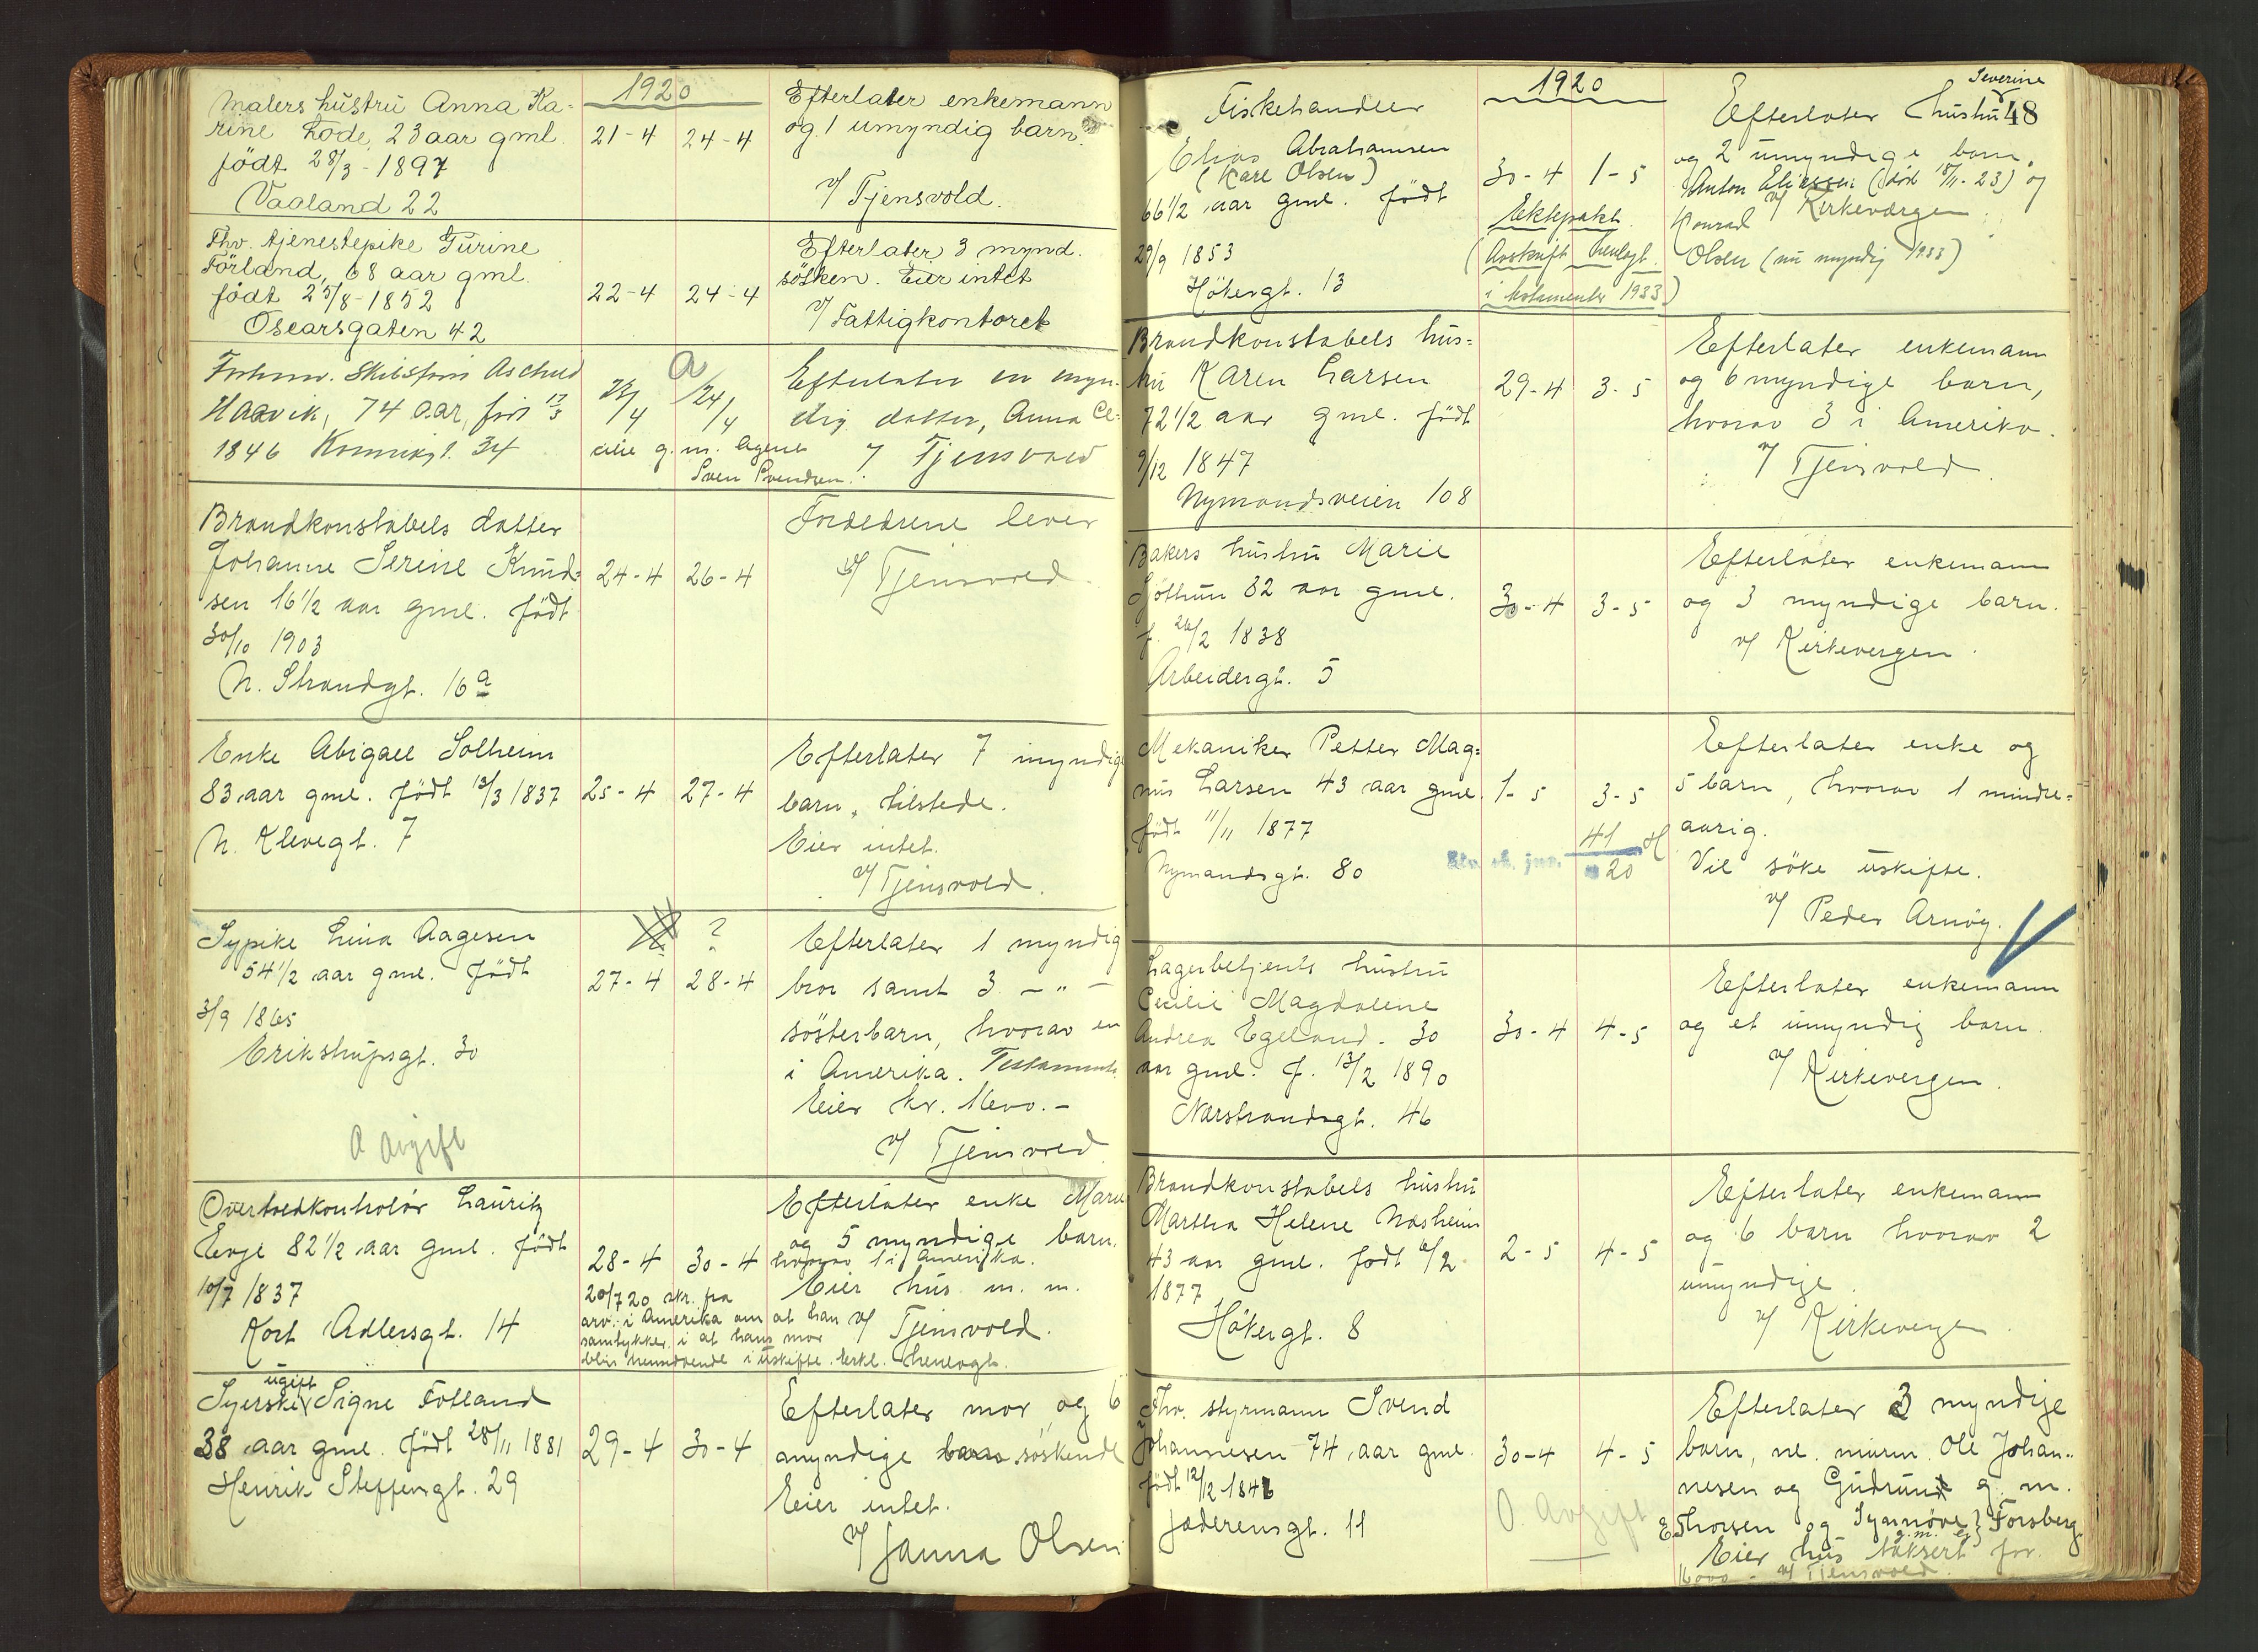 1920
Malers hustru Anna Ka-
rine Lode, 23 aar gml.
født 28/3 - 1897
Vaaland 22
21-4 24-4
Efterlater enkemann
og 1 umyndig barn.
v/ Tjensvold.
Fhv. tjenestepike Gurine
Førland, 68 aar gml.
født 25/8 - 1852
Oscarsgaten 42
22-4 24-4
Efterlater 3 mynd.
søsken. Eier intet
v/ Fattigkontoret
Haavik, 74 aar, født 17/3
1846 34
a
24/4
Efterlater en myn-
dig datter, Anna Ce-
cilie g. m. Agent
Sven Svendsen.
v/ Tjensvold
Brandkonstabels datter
Johanne Serine Knud-
sen 16 1/2 aar gml. født
30/10 1903
N. Strandgt. 16a
24-4 26-4
Foreldrene lever
v/ Tjensvold.
Enke Abigael Solheim
83 aar gml. født 13/3 1837
N. Klevegt. 7
25-4 27-4
Efterlater 7 myndige
barn, tilstede.
Eier intet.
v/ Tjensvold.
Sypike Lina Aagesen
54 1/2 aar gml. født
3/9 1865
Erikstrupsgt. 30
A Avgift
?
27-4 28-4
Efterlater 1 myndig
bror samt 3 - " -
søsterbarn, hvorav en
i Amerika. Testament.
Eier kr.
v/ Tjensvold
Lauritz
Evje 82 1/2 aar gml. født
10/7 1837
Kort Adlersgt. 14
28-4 30-4
20/7 20 skr. fra
arv. i Amerika om at han
samtykker i at hans mor
blir hensittende i uskifte. Erkl. henlagt.
Efterlater enke Marie
og 5 myndige barn,
hvorav 1 i Amerika.
Eier hus m. m.
v/ Tjensvold.
ugift
Syerske Signe Folland
38 aar gml. født 28/11 1881
Henrik Steffensgt. 29
29-4 30-4
Efterlater mor og 6
myndige barn søskende
Eier intet.
v/ Janna Olsen
1920
48
Fiskehandler
Elias Abrahamsen
(Kare Olsen)
66 1/2 aar gml. født
29/9 1853
Høkergt. 13
30-4 1-5
Ektepakt.
(Avskrift henlagt
i testamenter 1933)
Severine
Efterlater hustru
og 2 umyndige barn,
Anton Eliassen (død 18/11-23) og
v/ Kirkeværgen
Konrad
Olsen (nu myndig 1933)
Brandkonstabels hus-
tru Karen Larsen
72 1/2 aar gml. født
9/12 1847
Nymandsveien 108
29-4 3-5
Efterlater enkemann
og 6 myndige barn,
hvorav 3 i Amerika.
v/ Tjensvold
Bakers hustru Marie
Sjøthun 82 aar gml.
f. 26/2 1838
Arbeidergt. 5
30-4 3-5
Efterlater enkemann
og 3 myndige barn.
v/ Kirkevergen.
Mekaniker Petter Mag-
nus Larsen 43 aar gml.
født 11/11 1877
Nymandsgt. 80
1-5 3-5
41
20
Efterlater enke og
5 barn, hvorav 1 mindre-
aarig.
Vil søke uskifte.
v/ Peder Arnøy.
Lagerbetjents hustru
Cecilie Magdalene
Andrea Egeland - 30
aar gml. f. 13/2 1890
Nærstrandsgt. 46
30-4 4-5
Efterlater enkemann
og et umyndig barn.
v/ Kirkevergen.
Brandkonstabels hustru
Martha Helene Næsheim
43 aar gml. født 6/2
1877
Høkergt. 8
2-5 4-5
Efterlater enkemann
og 6 barn hvorav 2
umyndige.
v/ Kirkevergen
Fhv. styrmann Svend
Johannesen 74 aar gml.
født 12/12 1846
Jæderensgt. 11
30-4 4-5
O. Avgift
Efterlater 3 myndige
barn, nl. murm. Ole Johan-
nesen og Gudrun g. m.
E. Thorsen og Synnøve g.m. Forsberg
Eier hus taksert for
16000 - v/ Tjensvold.